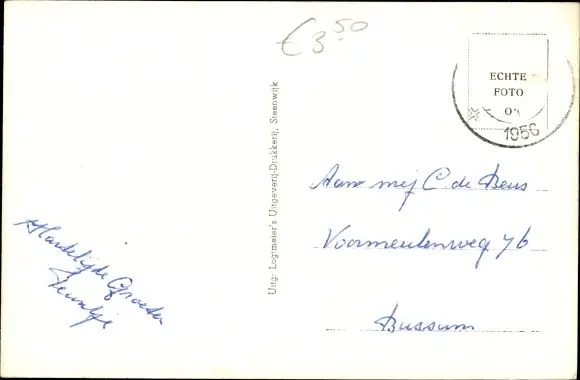 € 3.50
ECHTE
FOTO
1956
Uitg: Logtmeier's Uitgeverij-Drukkerij, Steenwijk
Aan mej C de Beus
76
Bussum
Hartelijke Groeten
Teuntje